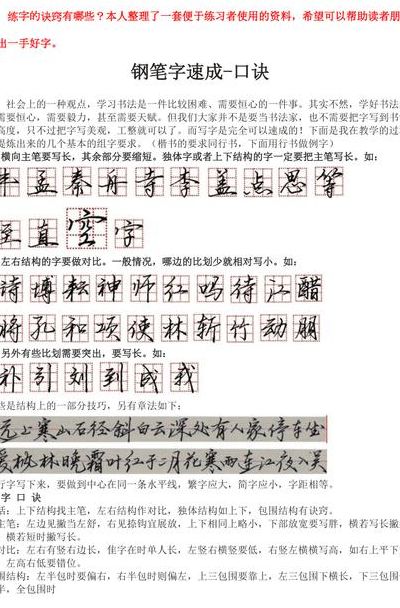 练字的诀窍有哪些？本人整理了一套便于练习者使用的资料，希望可以帮助读者朋
出一手好字。
钢笔字速成-口诀
社会上的一种观点，学习书法是一件比较困难、需要恒心的一件事。其实不然，学好书法
需要恒心，需要毅力，甚至需要天赋。但我们大家并不是要当书法家，也不需要把字写到书
高度，只不过把字写美观，工整就可以了。而写字是完全可以速成的！下面是我在教学的过
提炼出来的几个基本的组字要求。（楷书的要求同行书，下面用行书做例字）
横向主笔要写长，其余部分要缩短。独体字或者上下结构的字一定要把主笔写长。如：
孟 秦 舟 寺 李 盖 点 思 等
至 直 空 字
左右结构的字要做对比。一般情况，哪边的比划少就相对写小。如：
诗 博 耘 神 师 红 吗 待 江 醋
将 孔 和 项 使 林 斩 竹 动 朋
另外有些比划需要突出，要写长。如：
补 引 刘 到 成 我
些是结构上的一部分技巧，另有章法如下：
远上寒山石径斜白云深处有人家停车坐
爱枫林晚霜叶红于二月花寒雨连江夜入吴
行字写下来，要做到中心在同一条水平线，繁字应大，简字应小，字距相等。
字 口 诀
括：上下结构找主笔，左右结构作对比，独体结构如上下，包围结构有诀窍。
主笔：左边见撇当左舒，右见捺钩宜展放，上下相同上略小，下部放宽要写胖，横若写长撇
横若短时撇写长。
对比：左右有竖右边长，隹字在时单人长，左竖右横竖要低，右竖左横横写高，如右上平下
左高右低要错位。
围结构：左半包时要偏右，右半包时则偏左，上三包围要靠上，左三包围下横长，下三包围
半，全包围时